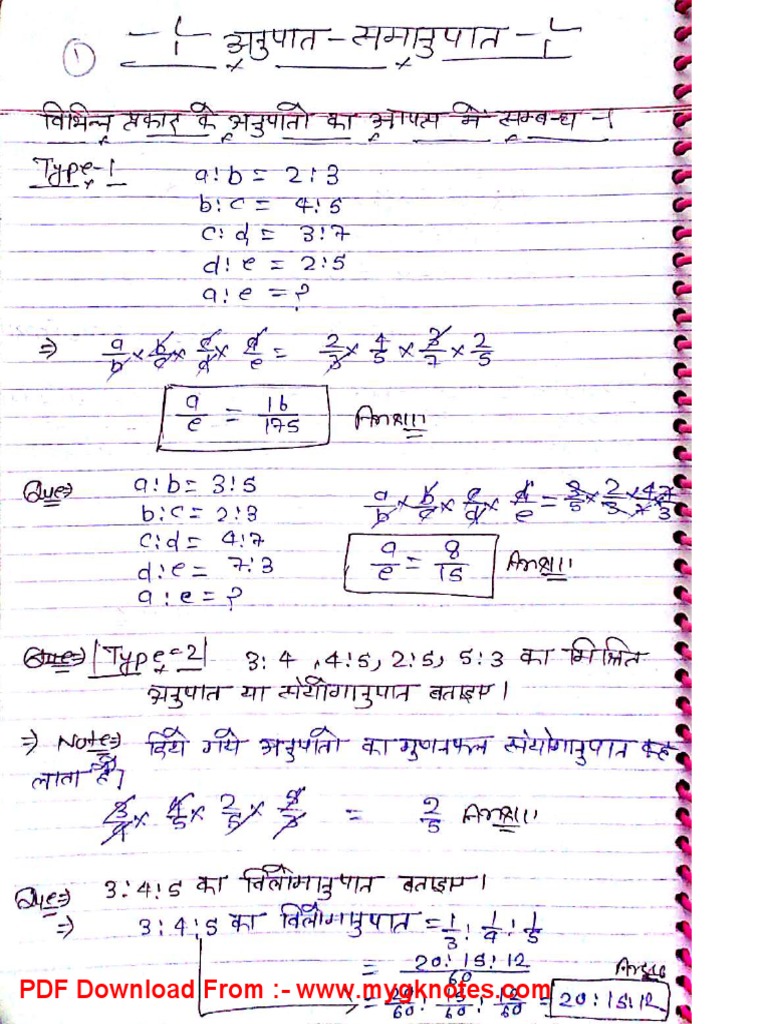 ① अनुपात - समानुपात
विभिन्न प्रकार के अनुपातों का आपस में सम्बन्ध -
Type-1 a:b = 2:3
b:c = 4:5
c:d = 3:7
d:e = 2:5
a:e = ?
⇒ a/b × b/c × c/d × d/e = 2/3 × 4/5 × 3/7 × 2/5
a/e = 16/175 Ans
Que⇒ a:b = 3:5
b:c = 2:3
c:d = 4:7
d:e = 7:3
a:e = ?
a/b × b/c × c/d × d/e = 3/5 × 2/3 × 4/7 × 7/3
a/e = 8/15 Ans
Que⇒ Type-2 3:4, 4:5, 2:5, 5:3 का मिश्रित
अनुपात या संयोगानुपात बताइए।
⇒ Note⇒ दिये गये अनुपातों का गुणनफल संयोगानुपात कह
लाता है।
3/4 × 4/5 × 2/5 × 5/3 = 2/5 Ans
Que⇒ 3:4:5 का विलोमानुपात बताइए।
⇒ 3:4:5 का विलोमानुपात = 1/3 : 1/4 : 1/5
= 20:15:12/60 Ans
= 20/60 : 15/60 : 12/60 = 20:15:12
PDF Download From :- www.mygknotes.com